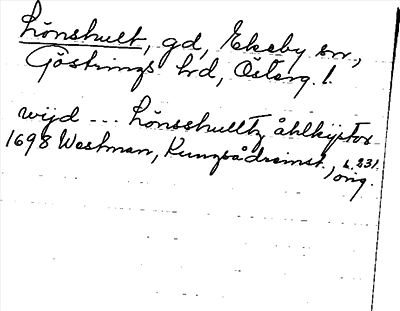 Lönshult, gd, Ekeby sn,
Göstrings hd, Österg. l.
wijd --- Lönsshulltz åhlkijstor
1698 Westman, Kungsådreinst., s. 231.
orig.